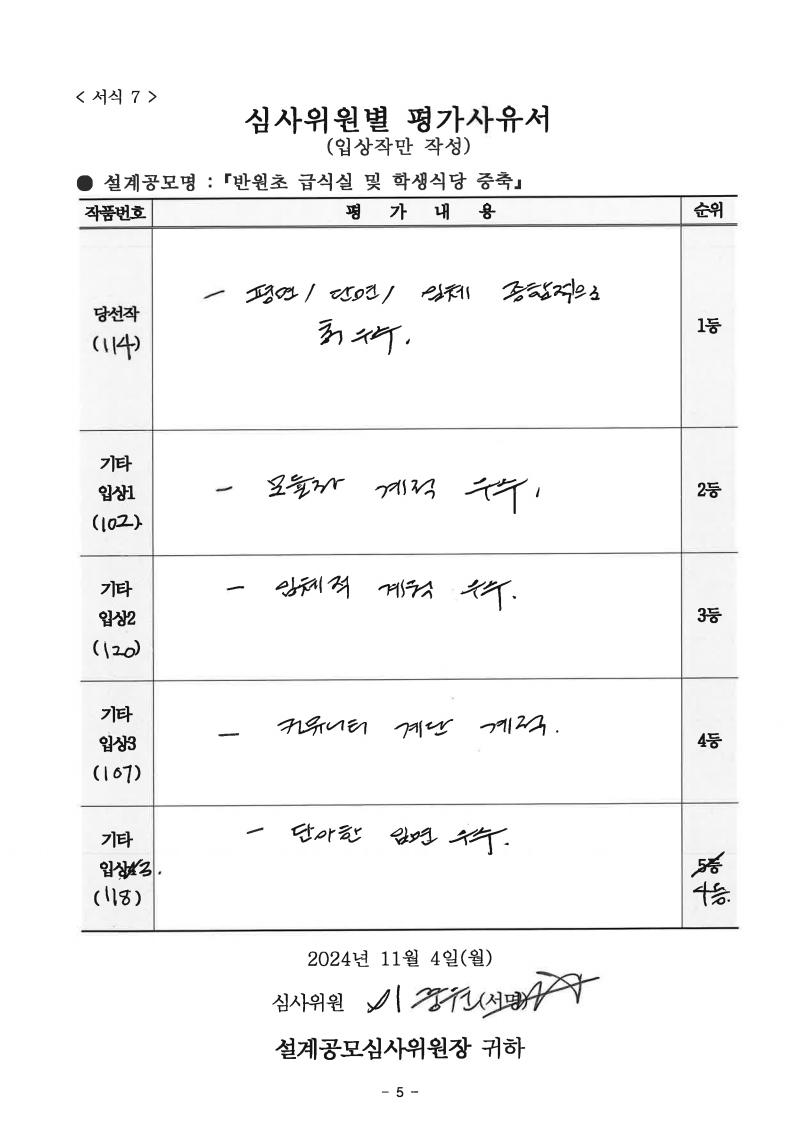 < 서식 7 >
심사위원별 평가사유서
(입상작만 작성)
● 설계공모명 : 『반원초 급식실 및 학생식당 증축』
작품번호 평 가 내 용 순위
당선작
(114)
- 평면/ 단면/ 입체 종합적으로
최우수.
1등
기타
입상1
(102)
- 모듈러 계획 우수.
2등
기타
입상2
(120)
- 입체적 계획 우수.
3등
기타
입상3
(107)
- 커뮤니티 계단 계획.
4등
기타
입상3.
(118)
- 단아한 입면 우수.
5등
4등.
2024년 11월 4일(월)
심사위원 이 (서명)
설계공모심사위원장 귀하
- 5 -